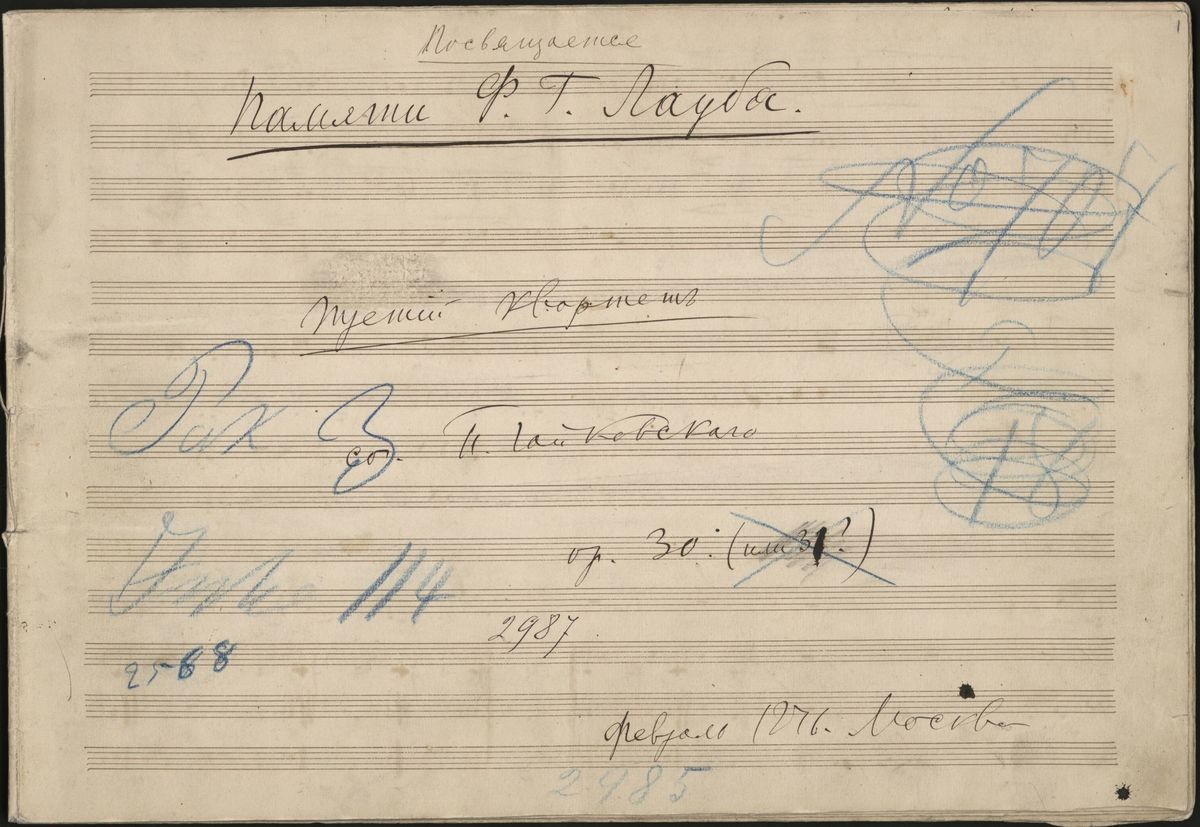 1
Посвящается
Памяти Ф. Г. Лауба.
Третий Квартетъ
соч. П. Чайковскаго
3
op. 30. (или 31?)
114
2987
2568
Февраль 1876. Москва
2485